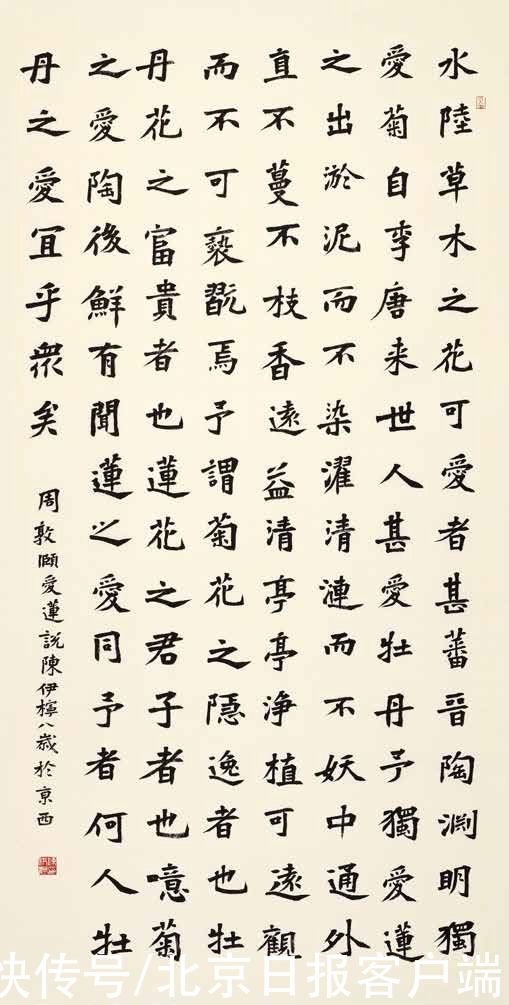 水陸草木之花可愛者甚蕃晉陶渊明獨
愛菊自李唐来世人甚愛牡丹予獨愛蓮
之出淤泥而不染濯清漣而不妖中通外
直不蔓不枝香遠益清亭亭浄植可遠觀
而不可褻翫焉予謂菊花之隱逸者也牡
丹花之富貴者也蓮花之君子者也噫菊
之愛陶後鮮有聞蓮之愛同予者何人牡
丹之愛宜乎衆矣
周敦頤愛蓮説陳伊檸八歲於京西
快传号/北京日报客户端